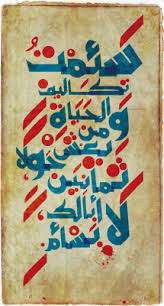 سئمتُ
تكاليف
الحياة
ومن
يعش
ثمانين حولا
لا أبالك
يسأم